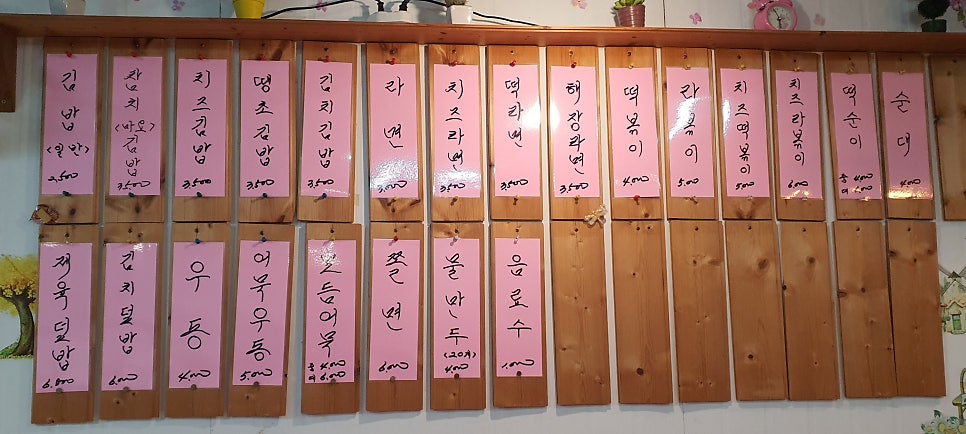 김밥
<일반>
2,500
참치
<마요>
김밥
3,500
치즈김밥
3,500
땡초김밥
3,500
김치김밥
3,500
라면
3,000
치즈라면
3,500
떡라면
3,500
해장라면
3,500
떡볶이
4,000
라볶이
5,000
치즈떡볶이
5,000
치즈라볶이
6,000
떡순이
중 4,000
순대
4,000
제육덮밥
6,000
김치덮밥
6,000
우동
4,000
어묵우동
5,000
모듬어묵
중 4,000
대 6,000
쫄면
6,000
물만두
(20개)
4,000
음료수
1,000